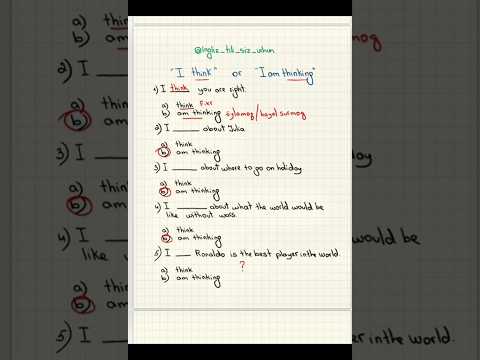 @ingliz_tili_siz_uchun
"I think" or "I am thinking"
1) I think you are right.
a) think fikr
b) am thinking o'ylamoq/hayol surmoq
2) I ______ about Julia
a) think
b) am thinking
3) I ______ about where to go on holiday
a) think
b) am thinking
4) I ______ about what the world would be
like without wars.
a) think
b) am thinking
5) I ___ Ronaldo is the best player in the world.
?
a) think
b) am thinking